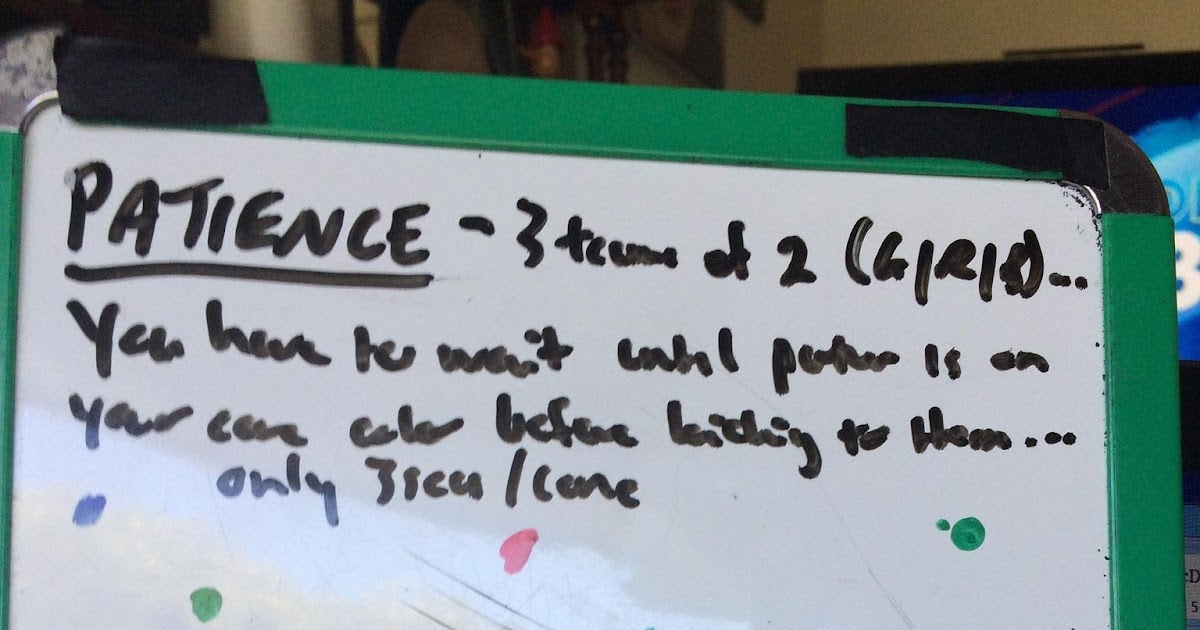 PATIENCE - 3 teams of 2 (G/R/B)...
You have to wait until partner is on
your cone color before kicking to them...
only 3 secs / cone